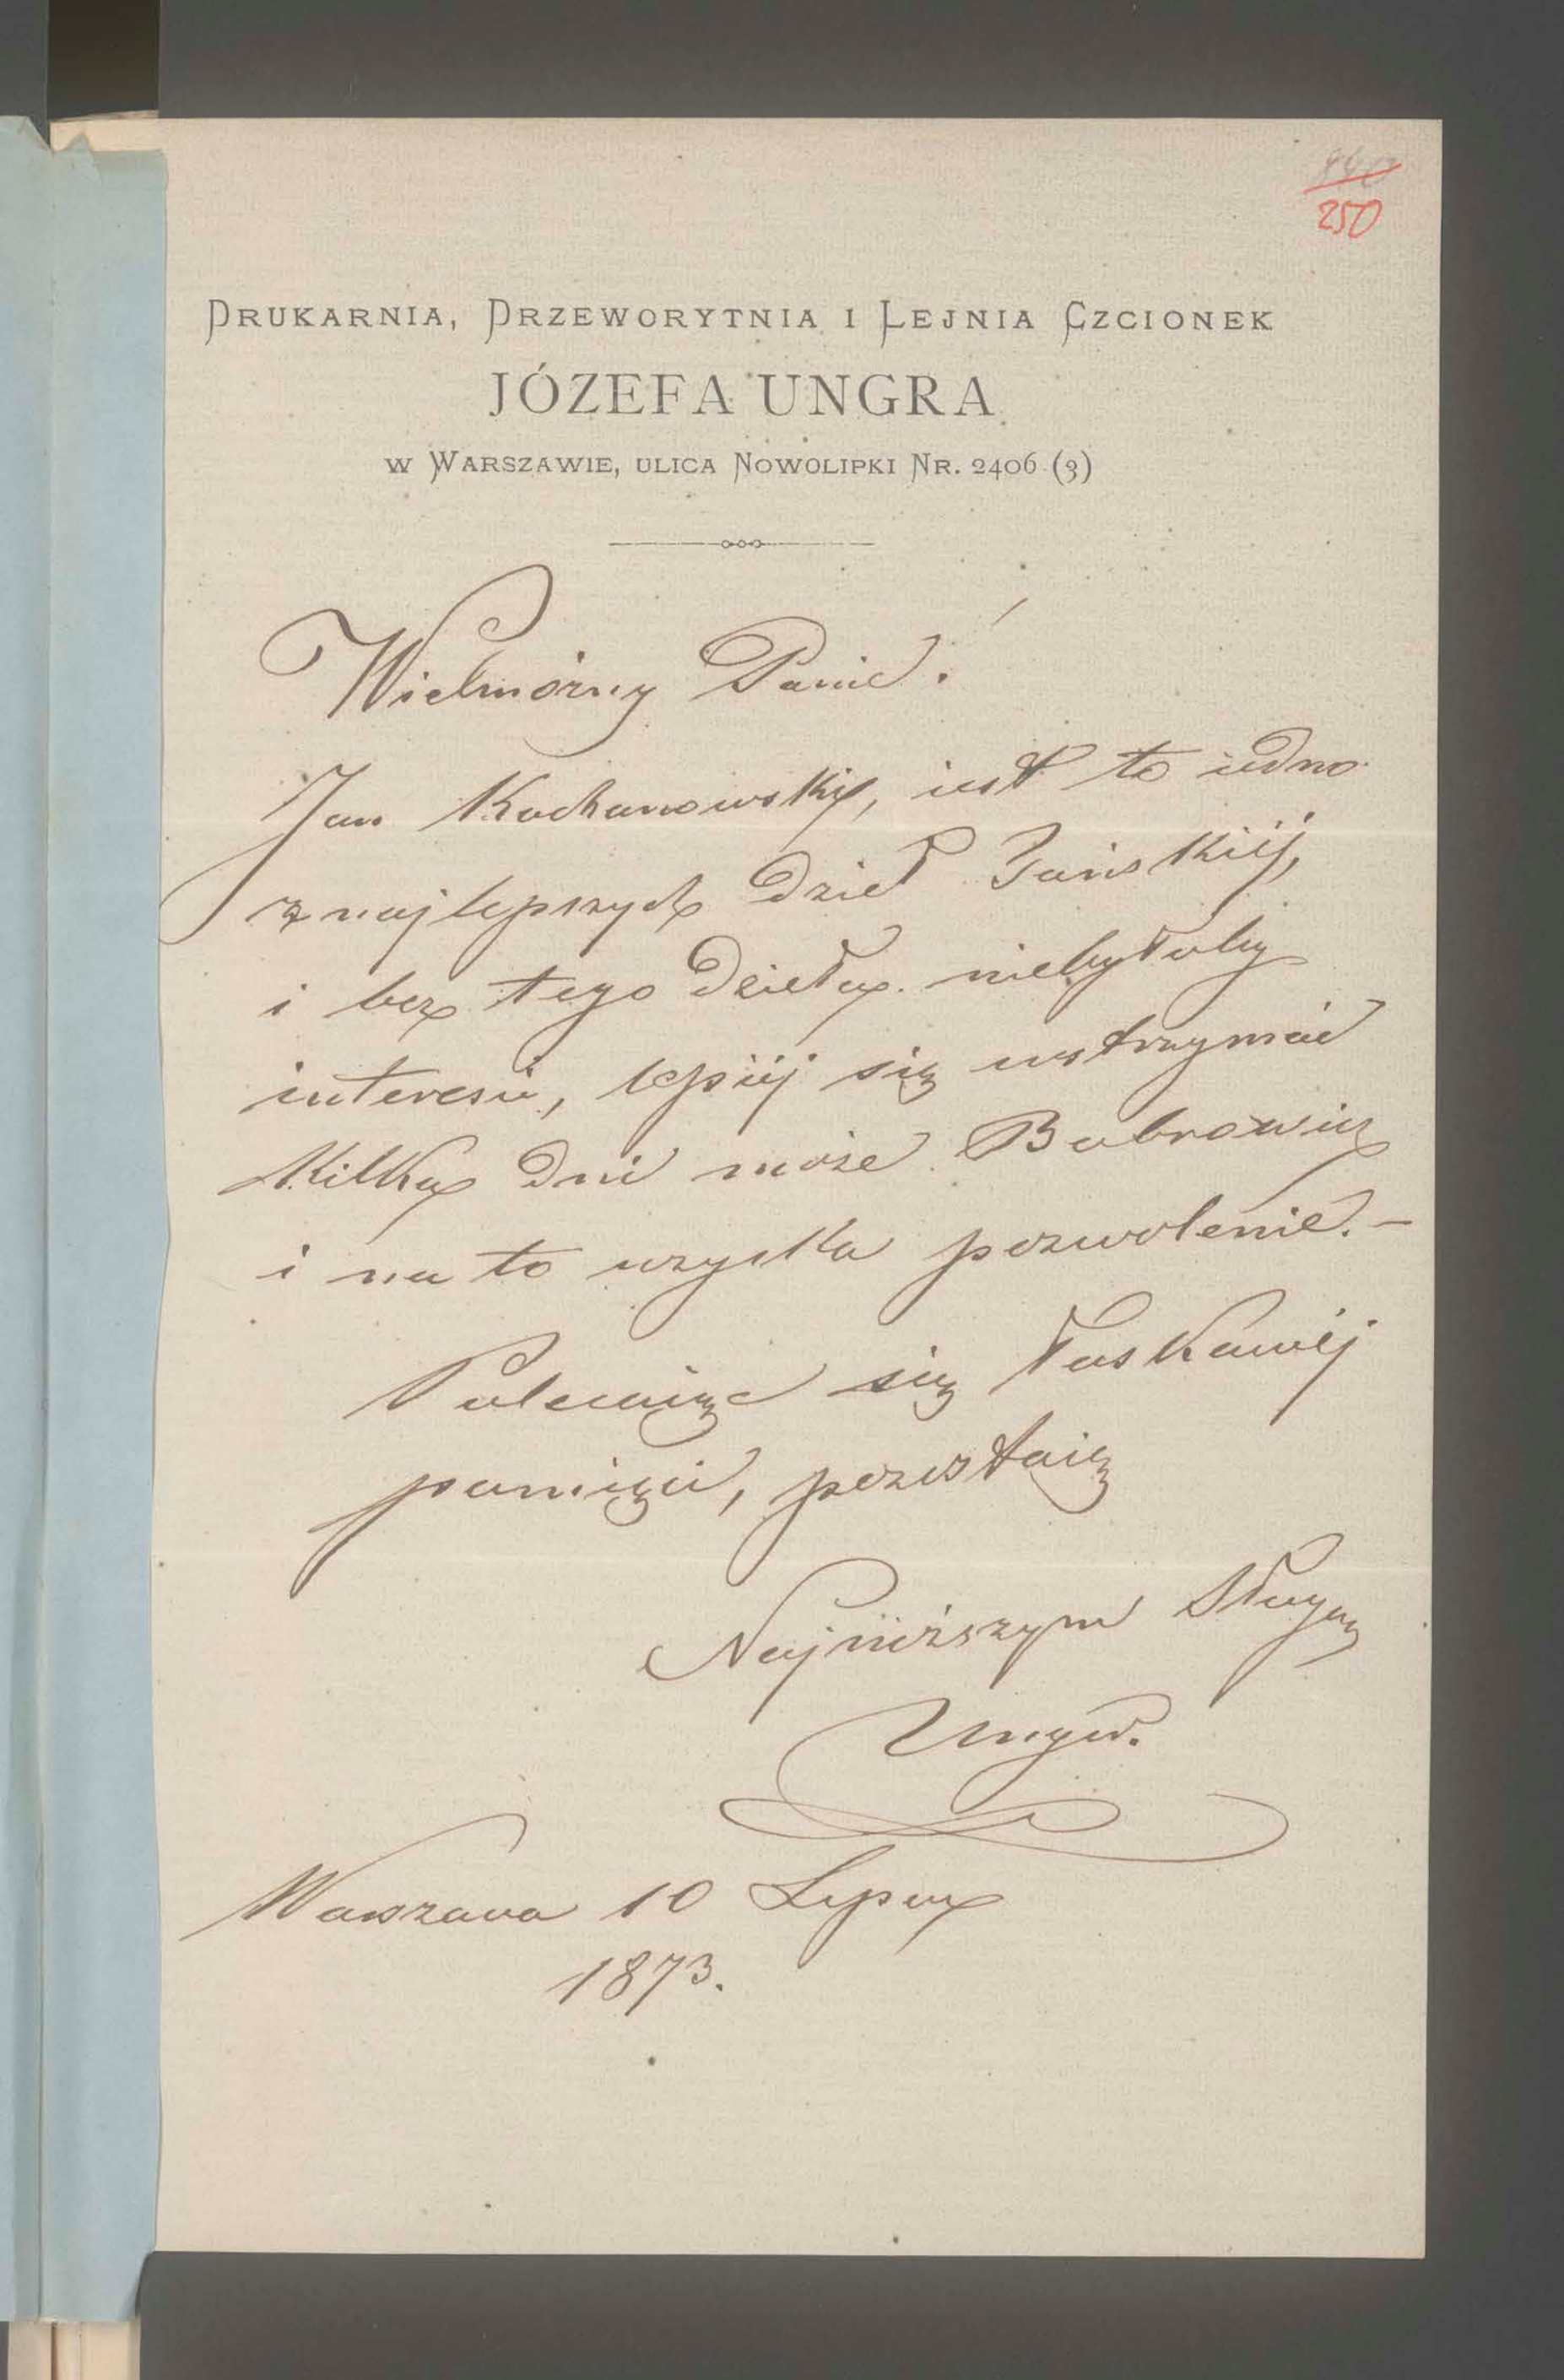 250
DRUKARNIA, DRZEWORYTNIA I LEJNIA CZCIONEK
JÓZEFA UNGRA
W WARSZAWIE, ULICA NOWOLIPKI NR. 2406 (3)
Wielmożny Panie!
Jan Kochanowski, iest to iedno
z najlepszych dzieł Tańskiéj,
i bez tego dzieła niebyłoby
interesu, lepiéj się wstrzymać
kilka dni może Bobrowicz
i na to uzyska pozwolenie. –
Polecaiąc się łaskawéj
pamięci, pozostaię
Najniższym Sługą
Unger.
Warszawa 10 Lipca
1873.